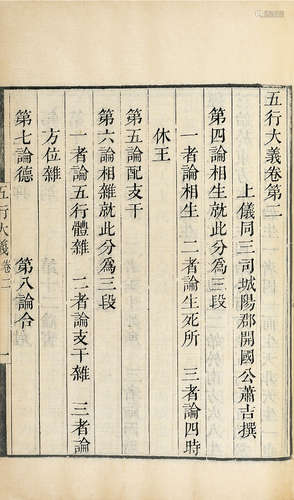 五行大義卷第二
上儀同三司城陽郡開國公蕭吉撰
第四論相生就此分爲三段
一者論相生 二者論生死所 三者論四時
休王
第五論配支干
第六論相雜就此分爲三段
一者論五行體雜 二者論支干雜 三者論
方位雜
第七論德 第八論合
五行大義 卷二 一